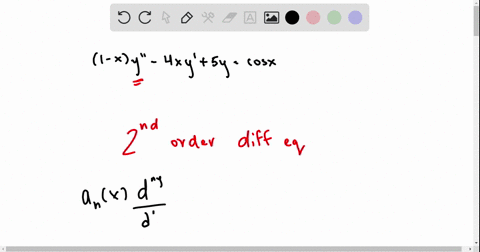 (1-x)y" - 4xy' + 5y = cosx
2nd order diff eq
an(x) d^ny/d'